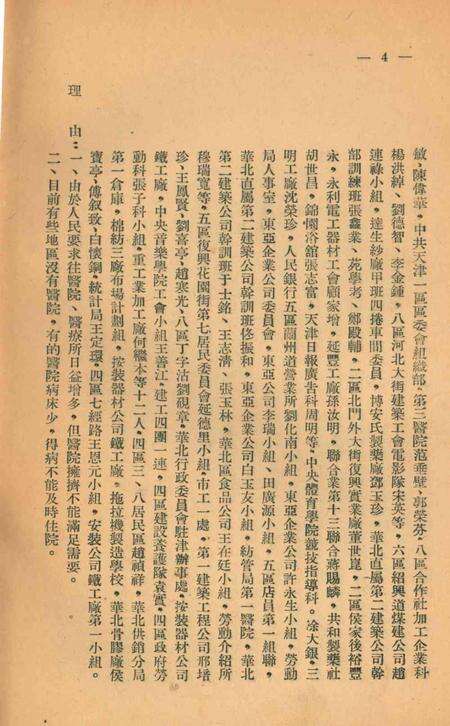 — 4 —
敏、陳偉華，中共天津一區區委會組織部，第三醫院范垂壁、郭榮芬，八區合作社加工企業科
楊洪綽、劉德智、李金鍾，八區河北大街建築工會電影隊宋英等，六區紹興道煤建公司趙
連祿小組，達生紗廠甲班四捲車間委員，博安氏製藥廠鄧玉珍，華北直屬第二建築公司幹
部訓練班張鑫業、苑學考、鄭殿輔，二區北門外大街復興實業廠董世崑，二區侯家後裕豐
永，永利電工器材工會顧家增，延豐工廠孫汝明，聯合業第十三聯合蔣賜麟，共和製藥社
胡世昌，錦園浴舘張志富，天津日報廣告科周明等，中央體育學院競技指導科。涂大銀，三
明工廠沈榮珍，人民銀行五區蘭州道營業所劉化南小組，東亞企業公司許永生小組，勞動
局人事室，東亞企業公司委員會，東亞公司李瑞小組、田廣源小組，五區店員第一組聯，
華北直屬第二建築公司幹訓班佟振和，東亞企業公司白玉友小組，紡管局第一醫院，華北
第二建築公司幹訓班于士銘、王志淸、張玉林，華北區食品公司王在廷小組，勞動介紹所
穆瑞寬等，五區復興花園街第七居民委員會延德里小組，市工一處，第一建築工程公司邢培
珍、王鳳賢、劉喜亭、趙寒光，八區丁字沽劉視章，華北行政委員會駐津辦事處，按裝器材公司
鐵工廠，中央音樂學院工會小組王善江，建工四團一連，四區建設養護隊袁實，四區政府勞
動科張子科小組，重工業加工廠何繼本等十二人，四區三、八居民區趙禎祥，華北供銷分局
第一倉庫，棉紡三廠布場計劃組，按裝器材公司鐵工廠，拖拉機製造學校，華北骨膠廠侯
寶亭、傅叙致、白懷鋼，統計局王定環，四區七經路王恩元小組，安裝公司鐵工廠第一小組。
理　由：一、由於人民要求往醫院、醫療所日益增多，但醫院擁擠不能滿足需要。
二、目前有些地區沒有醫院，有的醫院病床少，得病不能及時住院。